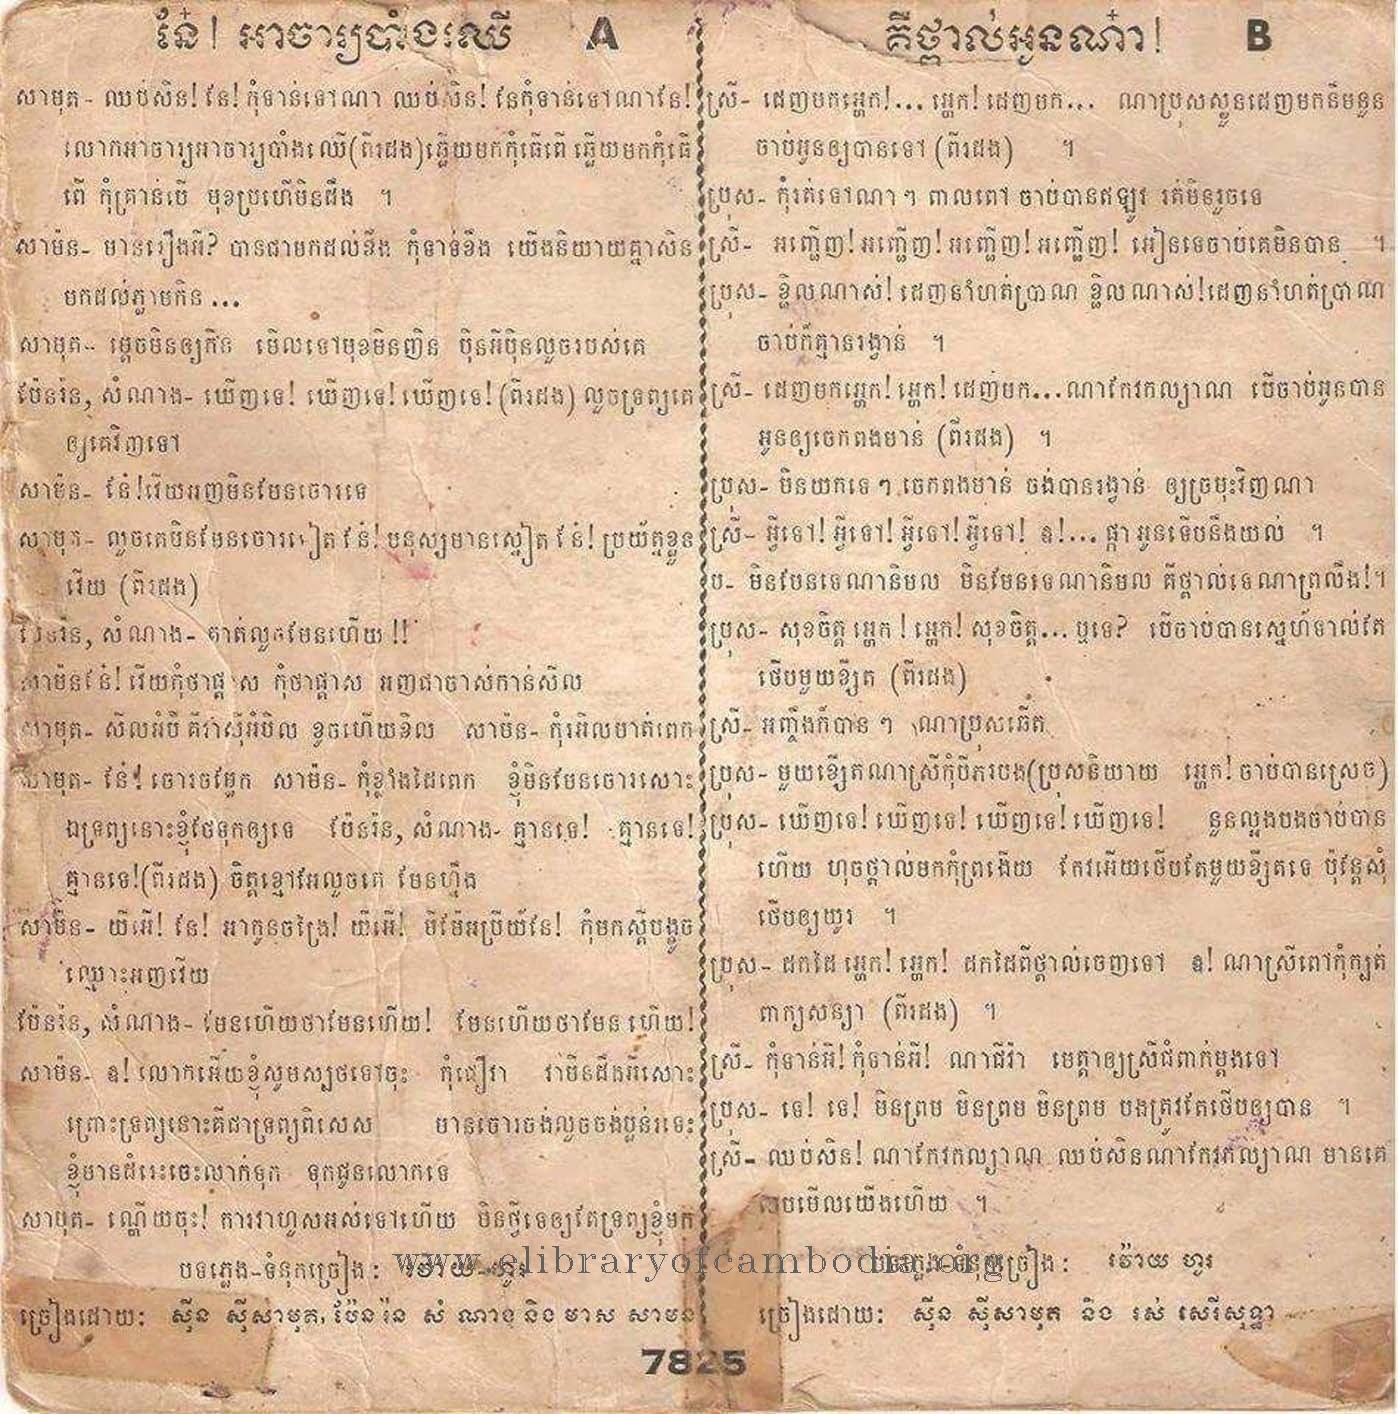 នែ៎! អាចារ្យបាំងឈើ A
សាមុត- ឈប់សិន! នែ! កុំទាន់ទៅណា ឈប់សិន! នែកុំទាន់ទៅណានែ!
លោកអាចារ្យអាចារ្យបាំងឈើ(ពីរដង)ឆ្លើយមកកុំធើពើ ឆ្លើយមកកុំធើ
ពើ កុំគ្រាន់បើ មុខប្រហើមិនដឹង ។
សាម៉ន- មានរឿងអី? បានជាមកដល់ខឹង កុំទាន់ខឹង យើងនិយាយគ្នាសិន
មកដល់ភ្លាមកិន ...
សាមុត- ម្ដេចមិនឲ្យកិន មើលទៅមុខមិនញិន ប៉ិនអីប៉ិនលួចរបស់គេ
ប៉ែនរ៉ន, សំណាង- ឃើញទេ! ឃើញទេ! ឃើញទេ! (ពីរដង) លួចទ្រព្យគេ
ឲ្យគេវិញទៅ
សាម៉ន- នែ៎! វើយអញមិនមែនចោរទេ
សាមុត- លួចគេមិនមែនចោរទៀត នែ៎! មនុស្សមានស្នៀត នែ៎! ប្រយ័ត្នខ្លួន
វើយ (ពីរដង)
ប៉ែនរ៉ន, សំណាង- គាត់លួចមែនហើយ !!
សាម៉ន នែ៎! វើយកុំថាផ្ដាស កុំថាផ្ដាស អញជាចាស់កាន់សីល
សាមុត- សីលអំបី គឺវាស៊ីអំបិល ខូចហើយខិល សាម៉ន- កុំរអិលមាត់ពេក
សាមុត- នែ៎! ចោរចម្លែក សាម៉ន- កុំខ្លាំងដៃពេក ខ្ញុំមិនមែនចោរសោះ
ឯទ្រព្យនោះខ្ញុំថែទុកឲ្យទេ ប៉ែនរ៉ន, សំណាង- គ្មានទេ! គ្មានទេ!
គ្មានទេ!(ពីរដង) ចិត្តខ្មៅអែលួចគេ មែនហ្នឹង
សាម៉ន- យីអើ! នែ! អាកូនចង្រៃ! យីអើ! មីម៉ែអប្រីយ៍នែ! កុំមកស្ដីបង្ខូច
ឈ្មោះអញវើយ
ប៉ែនរ៉ន, សំណាង- មែនហើយថាមែនហើយ! មែនហើយថាមែន ហើយ!
សាម៉ន- ឱ! លោកអើយខ្ញុំសូមស្បថទៅចុះ កុំជឿវា វាមិនដឹងអីសោះ
ព្រោះទ្រព្យនោះគឺជាទ្រព្យពិសេស មានចោរចង់លួចចង់ប្លន់រទេះ
ខ្ញុំមានដំរេះចេះលាក់ទុក ទុកជូនលោកទេ
សាមុត- ណ្ហើយចុះ! ការវាហួសអស់ទៅហើយ មិនថ្វីទេឲ្យតែទ្រព្យខ្ញុំមក
បទភ្លេង-ទំនុកច្រៀង : វ៉ោយ-ហូរ
ច្រៀងដោយ: ស៊ីន ស៊ីសាមុត, ប៉ែន រ៉ន សំ ណាង និង មាស សាមន
គឺថ្ពាល់អូនណ៎ា! B
ស្រី- ដេញមកអ្ហេក!... អ្ហេក! ដេញមក... ណាប្រុសស្លួនដេញមកនឹមនួន
ចាប់អូនឲ្យបានទៅ (ពីរដង) ។
ប្រុស- កុំរត់ទៅណា ៗ ពាលពៅ ចាប់បានឥឡូវ រត់មិនរួចទេ
ស្រី- អញ្ជើញ! អញ្ជើញ! អញ្ជើញ! អញ្ជើញ! អៀនទេចាប់គេមិនបាន ។
ប្រុស- ខ្ជិលណាស់! ដេញនាំហត់ប្រាណ ខ្ជិលណាស់! ដេញនាំហត់ប្រាណ
ចាប់ក៏គ្មានរង្វាន់ ។
ស្រី- ដេញមកអ្ហេក! អ្ហេក! ដេញមក...ណាកែវកល្យាណ បើចាប់អូនបាន
អូនឲ្យចេកពងមាន់ (ពីរដង) ។
ប្រុស- មិនយកទេ ៗ ចេកពងមាន់ ចង់បានរង្វាន់ ឲ្យច្រមុះវិញណា
ស្រី- អ្វីទៅ! អ្វីទៅ! អ្វីទៅ! អ្វីទៅ! ឱ!... ផ្កា អូនទើបនឹងយល់ ។
ប- មិនមែនទេណានិមល មិនមែនទេណានិមល គឺថ្ពាល់ទេណាព្រលឹង!។
ប្រុស- សុខចិត្ត អ្ហេក ! អ្ហេក! សុខចិត្ត... ឬទេ? បើចាប់បានស្នេហ៍ទាល់តែ
ថើបមួយខ្សឺត (ពីរដង)
ស្រី- អញ្ចឹងក៏បាន ៗ ណាប្រុសឆើត
ប្រុស- មួយខ្សឺតណាស្រីកុំបីភរបង(ប្រុសនិយាយ អ្ហេក! ចាប់បានស្រេច)
ប្រុស- ឃើញទេ! ឃើញទេ! ឃើញទេ! ឃើញទេ! នួនល្អងបងចាប់បាន
ហើយ ហុចថ្ពាល់មកកុំព្រងើយ កែវអើយថើបតែមួយខ្សឺតទេ ប៉ុន្តែសុំ
ថើបឲ្យយូរ ។
ប្រុស- ដកដៃ អ្ហេក! អ្ហេក! ដកដៃពីថ្ពាល់ចេញទៅ ឱ! ណាស្រីពៅកុំក្បត់
ពាក្យសន្យា (ពីរដង) ។
ស្រី- កុំទាន់អី! កុំទាន់អី! ណាជីវ៉ា មេត្តាឲ្យស្រីជំពាក់ម្ដងទៅ
ប្រុស- ទេ! ទេ! មិនព្រម មិនព្រម មិនព្រម បងត្រូវតែថើបឲ្យបាន ។
ស្រី- ឈប់សិន! ណាកែវកល្យាណ ឈប់សិនណាកែវកល្យាណ មានគេ
លបមើលយើងហើយ ។
បទភ្លេង-ទំនុកច្រៀង : វ៉ោយ ហូរ
ច្រៀងដោយ: ស៊ីន ស៊ីសាមុត និង រស់ សេរីសុទ្ធា
www.elibraryofcambodia.org
7825